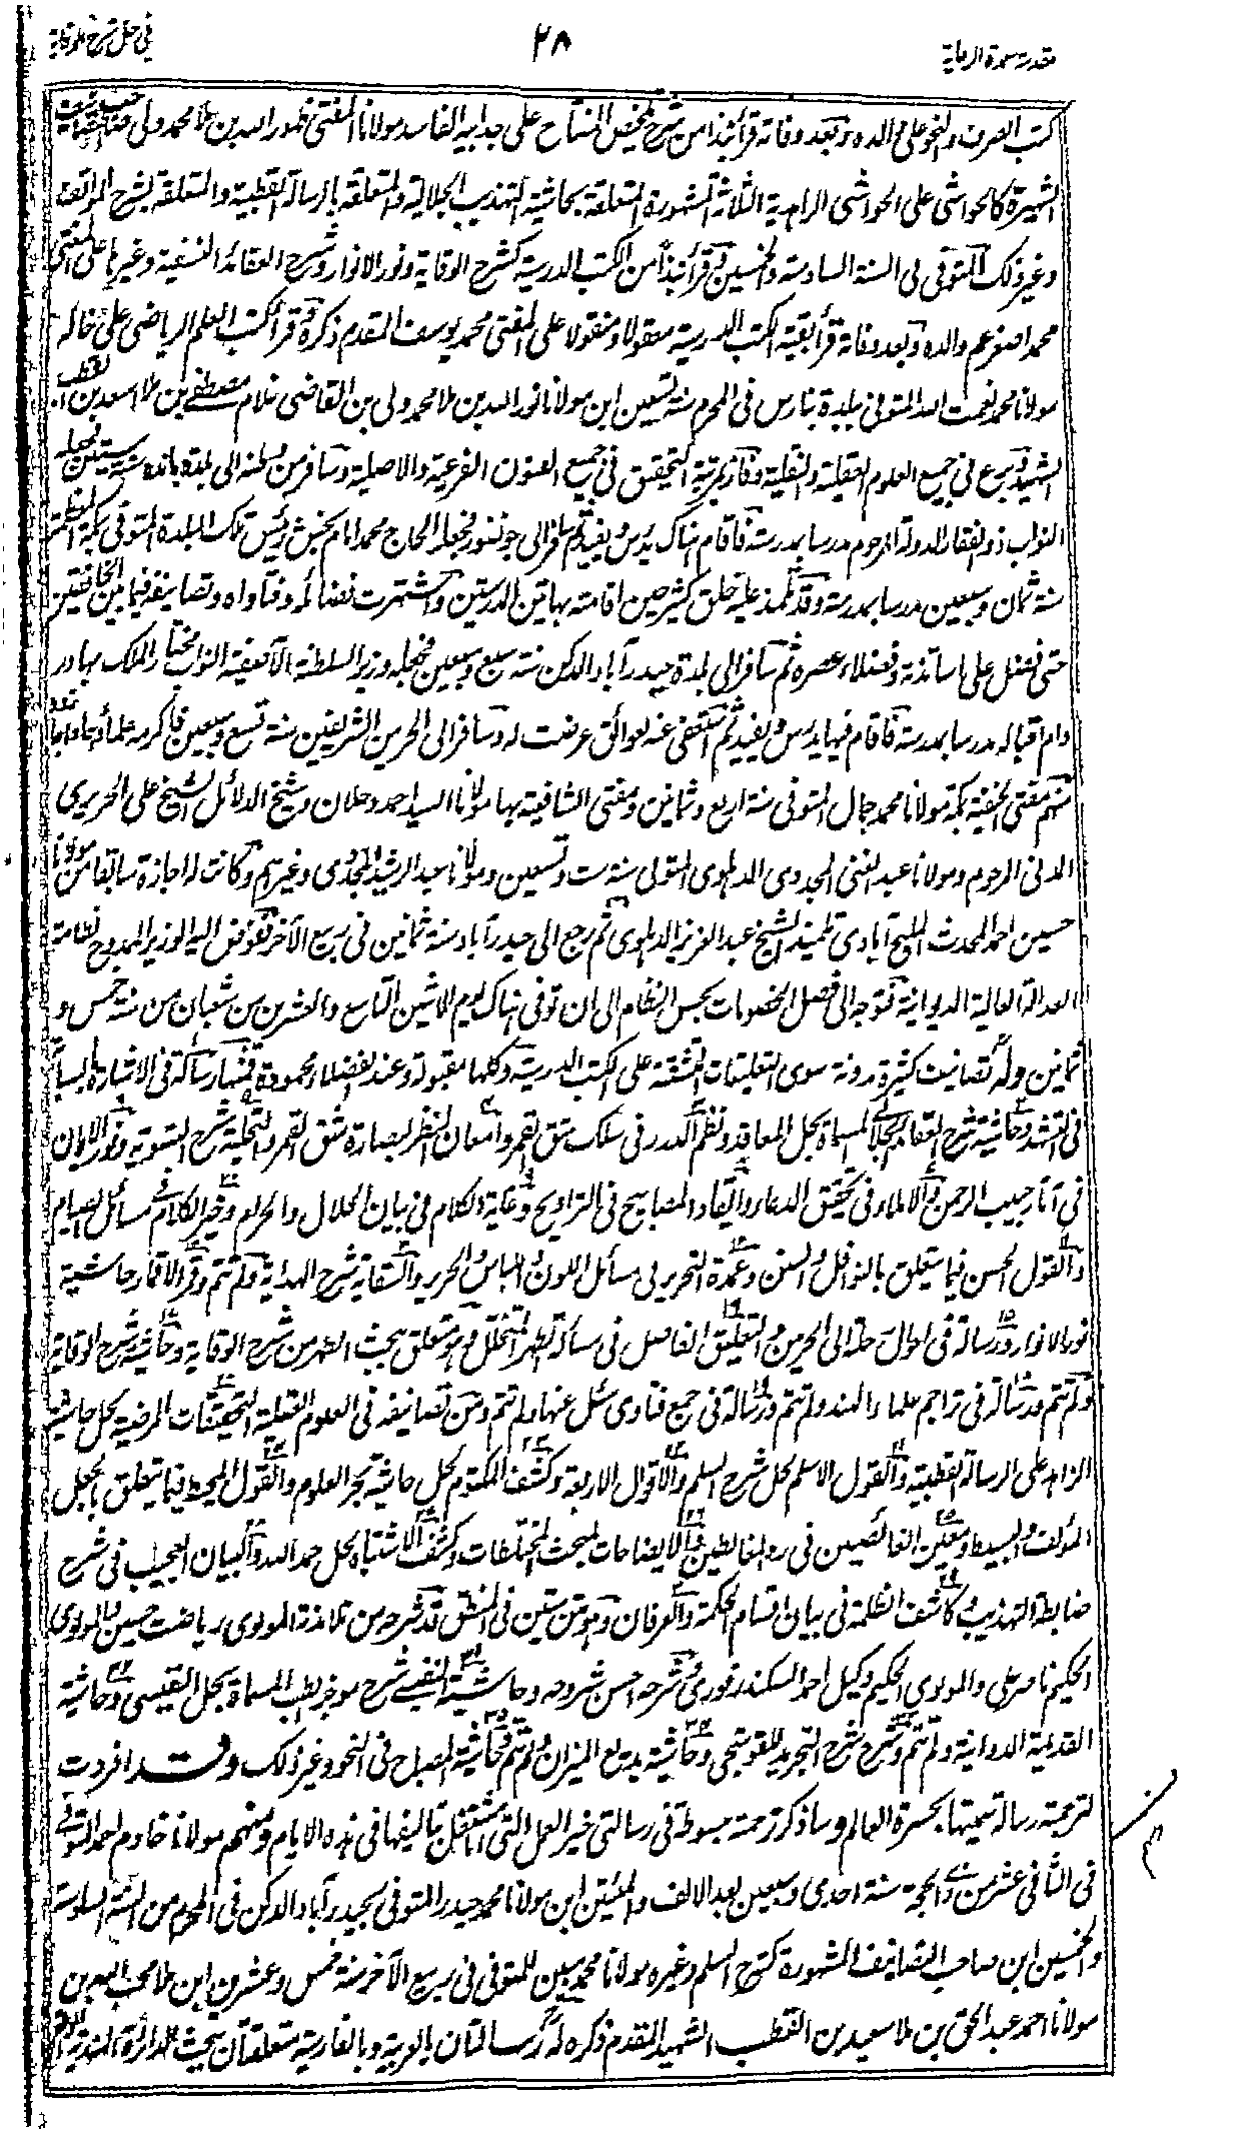 مقدمة عمدة الرعاية
٢٨
في حل شرح الوقاية
كتب الصرف والنحو على والده وبعد وفاته قرأ نبذا من شرح تلخيص المفتاح على جد ابيه الفاسد مولانا المفتي ظهور الله بن ملا محمد ولي صاحب التصانيف
الشهيرة كالحواشي على الحواشي الزاهدية الثلاثة المشهورة المتعلقة بحاشية التهذيب الجلالية والمتعلقة بالرسالة القطبية والمتعلقة بشرح المواقف
وغير ذلك المتوفى في السنة السادسة والخمسين وقرأ نبذا من الكتب الدرسية كشرح الوقاية ونور الانوار وشرح العقائد النسفية وغيرها على المفتي
محمد اصغر عم والده وبعد وفاته قرأ بقية الكتب الدرسية معقولا ومنقولا على المفتي محمد يوسف المقدم ذكره وقرأ كتب العلم الرياضي على خاله
مولانا محمد نعمت الله المتوفى ببلدة بنارس في المحرم سنة تسعين ابن مولانا نور الله بن ملا محمد ولي بن القاضي غلام مصطفى بن ملا اسعد بن القطب
الشهيد وبرع في جميع العلوم العقلية والنقلية وفاز بمرتبة التحقيق في جميع الفنون الفرعية والاصلية وسافر من وطنه الى بلدة باندة سنة ستين فجعله
النواب ذو الفقار الدولة المرحوم مدرسا بمدرسته فاقام هناك يدرس ويفيد ثم سافر الى جونفور فجعله الحاج محمد امام بخش رئيس تلك البلدة المتوفى بمكة المعظمة
سنة ثمان وسبعين مدرسا بمدرسته وقد تلمذ عليه خلق كثير حين اقامته بهاتين المدرستين واشتهرت فضائله وفتاواه وتصانيفه فيما بين الخافقين
حتى فضل على اساتذته وفضلاء عصره ثم سافر الى بلدة حيدرآباد الدكن سنة سبع وسبعين فجعله وزير السلطنة الآصفية النواب مختار الملك بهادر
دام اقباله مدرسا بمدرسته فاقام فيها يدرس ويفيد ثم استعفى عنه لعوائق عرضت له وسافر الى الحرمين الشريفين سنة تسع وسبعين فاكرمه علماءها واجازه
منهم مفتي الحنفية بمكة مولانا محمد جمال المتوفى سنة اربع وثمانين ومفتي الشافعية بها مولانا السيد احمد دحلان وشيخ الدلائل الشيخ علي الحريري
المدني المرحوم ومولانا عبد الغني المجددي الدهلوي المتوفى سنة ست وتسعين ومولانا عبد الرشيد المجددي وغيرهم وكانت له اجازة سابقا من مولانا
حسين احمد المحدث المليح آبادي تلميذ الشيخ عبد العزيز الدهلوي ثم رجع الى حيدرآباد سنة ثمانين في ربيع الآخر ففوض اليه الوزير الممدوح نظامة
العدالة العالية الديوانية فتوجه الى فصل الخصومات بحسن النظام الى ان توفي هناك يوم الاثنين التاسع والعشرين من شعبان من سنة خمس و
ثمانين وله تصانيف كثيرة مدونة سوى التعليقات المتشتتة على الكتب الدرسية وكلها مقبولة وعند الفضلاء محمودة فمنها رسالة في الاشارة بالسبابة
في التشهد وحاشية شرح العقائد الجلالي المسماة بحل المعاقد ونظم الدرر في سلك شق القمر وامعان النظر لبصارة شق القمر والتحلية شرح التسوية ونور الايمان
في آثار حبيب الرحمن والاملاء في تحقيق الدعاء وايقاد المصابيح في التراويح وغاية الكلام في بيان الحلال والحرام وخير الكلام في مسائل الصيام
والقول الحسن فيما يتعلق بالنوافل والسنن وعمدة التحرير في مسائل اللون واللباس والحرير والسقاية شرح الهداية ولم تتم وقمر الاقمار حاشية
نور الانوار ورسالة في احوال رحلته الى الحرمين والتعليق الفاصل في مسألة الطهر المتخلل وهو متعلق ببحث الطهر من شرح الوقاية وحاشية شرح الوقاية
ولم تتم ورسالة في تراجم علماء الهند ولم تتم ورسالة في جمع فتاوى سئل عنها ولم تتم ومن تصانيفه في العلوم العقلية التحقيقات المرضية لحل حاشية
الزاهد على الرسالة القطبية والقول الاسلم لحل شرح السلم والاقوال الاربعة وكشف المكتوم لحل حاشية بحر العلوم والقول المحيط فيما يتعلق بالجعل
المؤلف والبسيط ومعين الغائصين في رد المغالطين والايضاحات لمبحث المختلطات وكشف الاشتباه لحل حمد الله والبيان العجيب في شرح
ضابطة التهذيب وكاشف الظلمة في بيان اقسام الحكمة والعرفان وهو متن متين في المنطق قد شرحه من تلامذته المولوي رياضت حسين والمولوي
الحكيم ناصر علي والمولوي الحكيم وكيل احمد السكندرفوري شرحه احسن شروحه وحاشية النفيسي شرح موجز الطب المسماة بحل النفيسي وحاشية
القديمة الدوانية ولم تتم وشرح شرح التجريد للقوشجي وحاشية بديع الميزان ولم تتم وحاشية المصباح في النحو وغير ذلك وقد افردت
لترجمته رسالة سميتها بحسرة العالم وساذكر ترجمته مبسوطة في رسالتي خير العمل التي انا مشتغل بتاليفها في هذه الايام ومنهم مولانا خادم احمد المتوفى
في الثاني عشر من ذي الحجة سنة احدى وسبعين بعد الالف والمئتين ابن مولانا محمد حيدر المتوفى بحيدرآباد الدكن في المحرم من السنة السادسة
والخمسين ابن صاحب التصانيف المشهورة كشرح السلم وغيره مولانا محمد مبين المتوفى في ربيع الآخر سنة خمس وعشرين ابن ملا محب الله بن
مولانا احمد عبد الحق بن ملا سعيد بن القطب الشهيد المقدم ذكره له رسالتان بالعربية وبالفارسية متعلقتان ببحث الدائرة الهندية